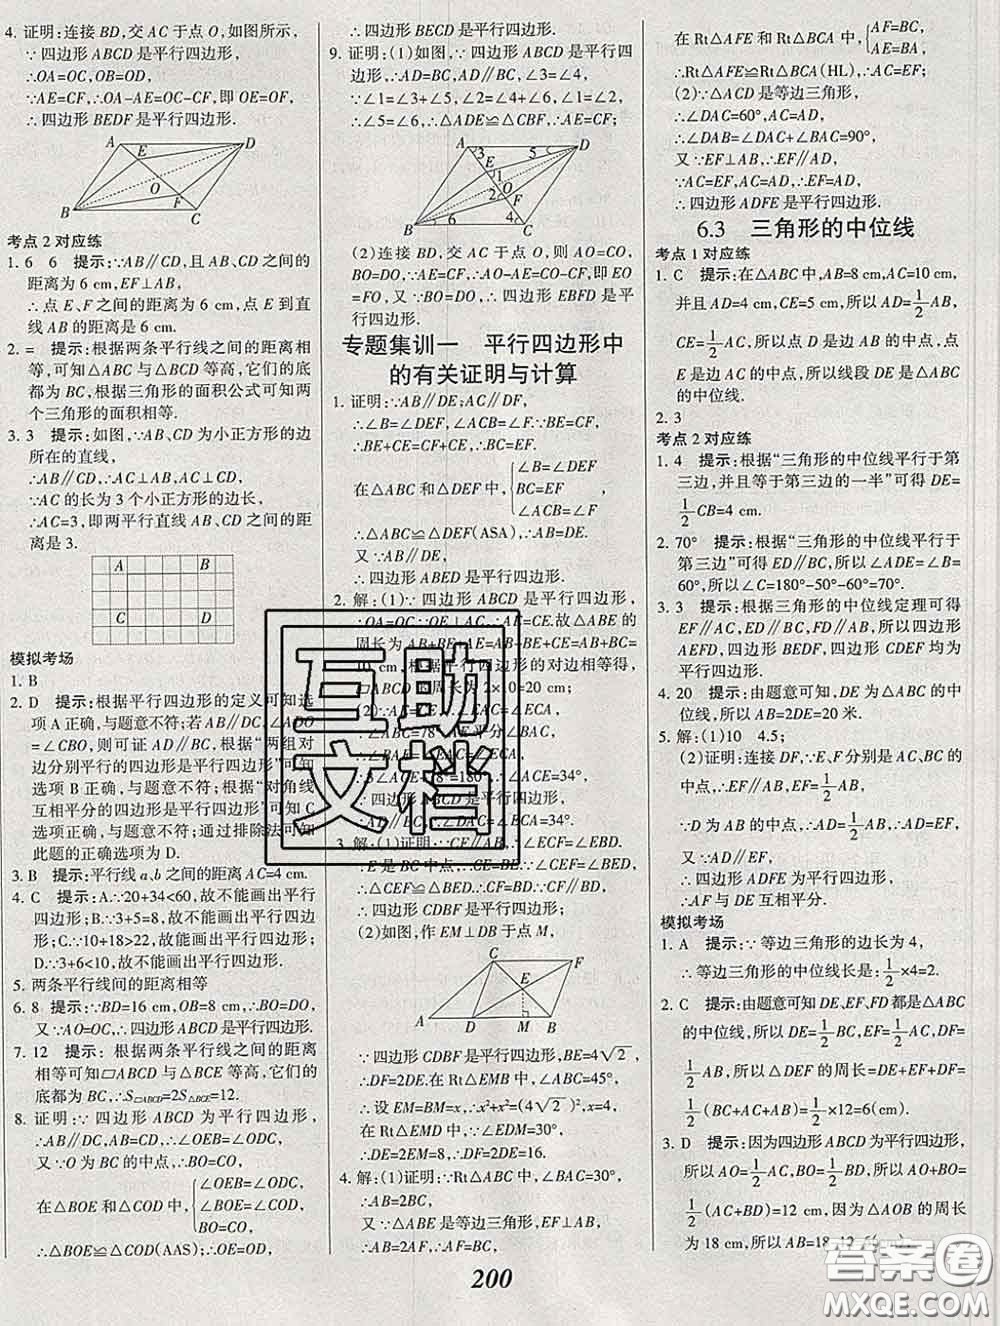 4. 证明:连接 BD,交 AC 于点 O,如图所示,
∵四边形 ABCD 是平行四边形,
∴OA=OC,OB=OD,
∵AE=CF,∴OA-AE=OC-CF,即 OE=OF,
∴四边形 BEDF 是平行四边形.
A D
E
O
B F C
考点 2 对应练
1. 6 6 提示:∵AB∥CD,且 AB、CD 之间的
距离为 6 cm,EF⊥AB,
∴点 E、F 之间的距离为 6 cm,点 E 到直
线 AB 的距离是 6 cm.
2. = 提示:根据两条平行线之间的距离相
等,可知△ABC 与△DBC 等高,它们的底
都为 BC,根据三角形的面积公式可知两
个三角形的面积相等.
3. 3 提示:如图,AB、CD 为小正方形的边
所在的直线,
∴AB∥CD,∴AC⊥AB,AC⊥CD,
∵AC 的长为 3 个小正方形的边长,
∴AC=3,即两平行直线 AB、CD 之间的距
离是 3.
A B
C D
模拟考场
1. B
2. D 提示:根据平行四边形的定义可知选
项 A 正确,与题意不符;若 AD=BC,∠ADO
=∠CBO,则可证 AD∥BC,根据“两组对
边分别平行的四边形是平行四边形”可知
选项 B 正确,与题意不符;根据“对角线
互相平分的四边形是平行四边形”可知 C
选项正确,与题意不符;通过排除法可知
此题的正确选项为 D.
3. B 提示:平行线 a、b 之间的距离 AC=4 cm.
4. C 提示:A∵20+34<60,故不能画出平行
四边形;B∵3+5=8,故不能画出平行四边
形;C.∵10+18>22,故能画出平行四边形;
D∵3+6<10,故不能画出平行四边形.
5. 两条平行线间的距离相等
6. 8 提示:∵BD=16 cm,OB=8 cm,∴BO=DO,
又∵AO=OC,∴四边形 ABCD 是平行四边形.
7. 12 提示:根据两条平行线之间的距离
相等可知▱ABCD 与△BCE 等高,它们的
底都为 BC,∴S▱ABCD=2S△BCE=12.
8. 证明:∵四边形 ABCD 为平行四边形,
∴AB∥DC,AB=CD,∴∠OEB=∠ODC,
又∵O 为 BC 的中点,∴BO=CO,
在△BOE 和△COD 中,{∠OEB=∠ODC,
∠BOE=∠COD,
BO=CO,
∴△BOE≌△COD(AAS);∴OE=OD,
∴四边形 BECD 是平行四边形.
9. 证明:(1)如图,∵四边形 ABCD 是平行四
边形,∴AD=BC,AD∥BC,∴∠3=∠4,
∵∠1=∠3+∠5,∠2=∠4+∠6,∠1=∠2,
∴∠5=∠6,∴△ADE≌△CBF,∴AE=CF;
A 3 5 D
E 1
O
2 F
B 6 4 C
(2)连接 BD,交 AC 于点 O,则 AO=CO,
BO=DO,∵AE=CF,∴AO-AE=CO-CF,即 EO
=FO,又∵BO=DO,∴四边形 EBFD 是平
行四边形.
专题集训一 平行四边形中
的有关证明与计算
1. 证明:∵AB∥DE;AC∥DF,
∴∠B=∠DEF,∠ACB=∠F.∵BE=CF,
∴BE+CE=CF+CE,∴BC=EF.
在△ABC 和△DEF 中,{∠B=∠DEF
BC=EF ,
∠ACB=∠F
∴△ABC≌△DEF(ASA),∴AB=DE,
又∵AB∥DE,
∴四边形 ABED 是平行四边形.
2. 解:(1)∵四边形 ABCD 是平行四边形,
∴OA=OC.∵OE⊥AC,∴AE=CE.故△ABE 的
周长为 AB+BE+AE=AB+BE+CE=AB+BC=
10 cm,根据平行四边形的对边相等得,
▱ABCD 的周长为 2×10=20 cm;
=∠ECA,
∠B
=180°,
∠ACE=34°,
∴四边形 ABCD 是平行四边形,
∴∠DAC=∠BCA=34°.
3. 解:(1)证明:∵CF∥AB,∴∠ECF=∠EBD.
∵E 是 BC 中点,∴CE=BE.
∴△CEF≌△BED.∴CF=BD.
∴四边形 CDBF 是平行四边形;
(2)如图,作 EM⊥DB 于点 M,
C F
E
A D M B
∵四边形 CDBF 是平行四边形,BE=4√2,
∴DF=2DE.在 Rt△EMB 中,∠ABC=45°,
∴设 EM=BM=x,∴x²+x²=(4√2)²,∴x=4
在 Rt△EMD 中,∵∠EDM=30°,
∴DE=2EM=8,∴DF=2DE=16.
4. 解:(1)证明:∵Rt△ABC 中,∠BAC=30°,
∴AB=2BC,
又∵△ABE 是等边三角形,EF⊥AB,
∴AB=2AF,
在 Rt△AFE 和 Rt△BCA 中,{AF=BC,
AE=BA,
∴Rt△AFE≌Rt△BCA(HL),∴AC=EF;
(2)∵△ACD 是等边三角形,
∴∠DAC=60°,AC=AD,
∴∠DAB=∠DAC+∠BAC=90°,
又∵EF⊥AB,∴EF∥AD,
∵AC=EF,AC=AD,∴EF=AD,
∴四边形 ADFE 是平行四边形.
6.3 三角形的中位线
考点 1 对应练
1. C 提示:在△ABC 中,AB=8 cm,AC=10 cm,
并且 AD=4 cm,CE=5 cm,所以 AD=1/2AB,
CE=1/2AC,所以点 D 是 AB 的中点,点
E 是 AC 的中点,所以线段 DE 是△ABC
的中位线.
2. 3
考点 2 对应练
1. 4 提示:根据“三角形的中位线平行于第
三边,并且等于第三边的一半”可得 DE=
1/2CB=4 cm.
2. 70° 提示:根据“三角形的中位线平行于
第三边”可得 ED∥BC,所以∠ADE=∠B=
60°,所以∠C=180°-50°-60°=70°.
3. 3 提示:根据三角形的中位线定理可得
EF∥AC,ED∥BC,DF∥AB,所以四边形
AEFD,四边形 EBFD,四边形 CDEF 均为
平行四边形.
4. 20 提示:由题意可知,DE 为△ABC 的中
位线,所以 AB=2DE=20 米.
5. 解:(1)10 4.5;
(2)证明:连接 DF,∵E、F 分别是 AC、BC 的
中点,∴EF∥AB,EF=1/2AB,
∵D 为 AB 的中点,∴AD=1/2AB,∴AD=EF,
又∵AD∥EF,
∴四边形 ADFE 为平行四边形,
∴AF 与 DE 互相平分.
模拟考场
1. A 提示:∵等边三角形的边长为 4,
∴等边三角形的中位线长是:1/2×4=2.
2. C 提示:由题意可知 DE、EF、FD 都是△ABC
的中位线,所以 DE=1/2BC,EF=1/2AC,DF=
1/2AB,所以△DEF 的周长=DE+EF+DF=
1/2(BC+AC+AB)=1/2×12=6(cm).
3. D 提示:因为四边形 ABCD 为平行四边形,
所以 AO=1/2AC,BO=1/2BD,所以 AO+BO=
1/2(AC+BD)=12 cm,因为△AOB 的周长
为 18 cm,所以 AB=18-12
200
互助
文档
答案圈
MXQE.COM